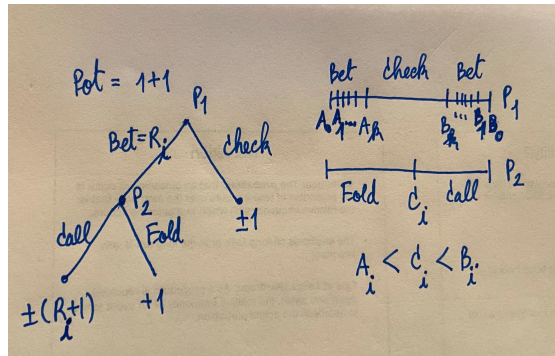 Pot = 1+1
P₁
Bet=Rᵢ
check
P₂
call
Fold
±1
±(Rᵢ+1)
+1
Bet check Bet
P₁
A₀ A₁ ... Aₖ Bₖ ... B₁ B₀
P₂
Fold Cᵢ call
Aᵢ < Cᵢ < Bᵢ